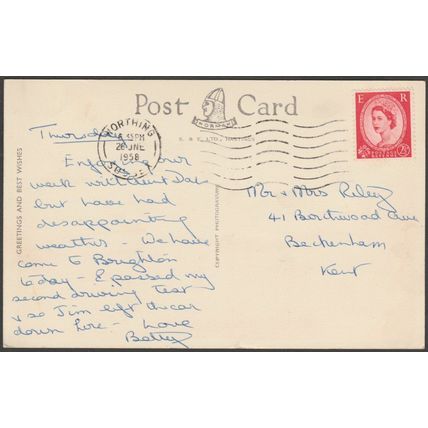 Post Card
NORMAN
S. & E. LTD., HASTINGS
GREETINGS AND BEST WISHES
COPYRIGHT PHOTOGRAPH
WORTHING
6 15 PM
26 JNE
1958
SUSSEX
E R
POSTAGE REVENUE
2½
Thursday
Enjoying our
week without Dad
but have had
disappointing
weather - We have
come to Brighton
today - & passed my
second driving test
& so Jim left the car
down here - Love
Betty
Mr & Mrs Riley
41 Ave
Beckenham
Kent